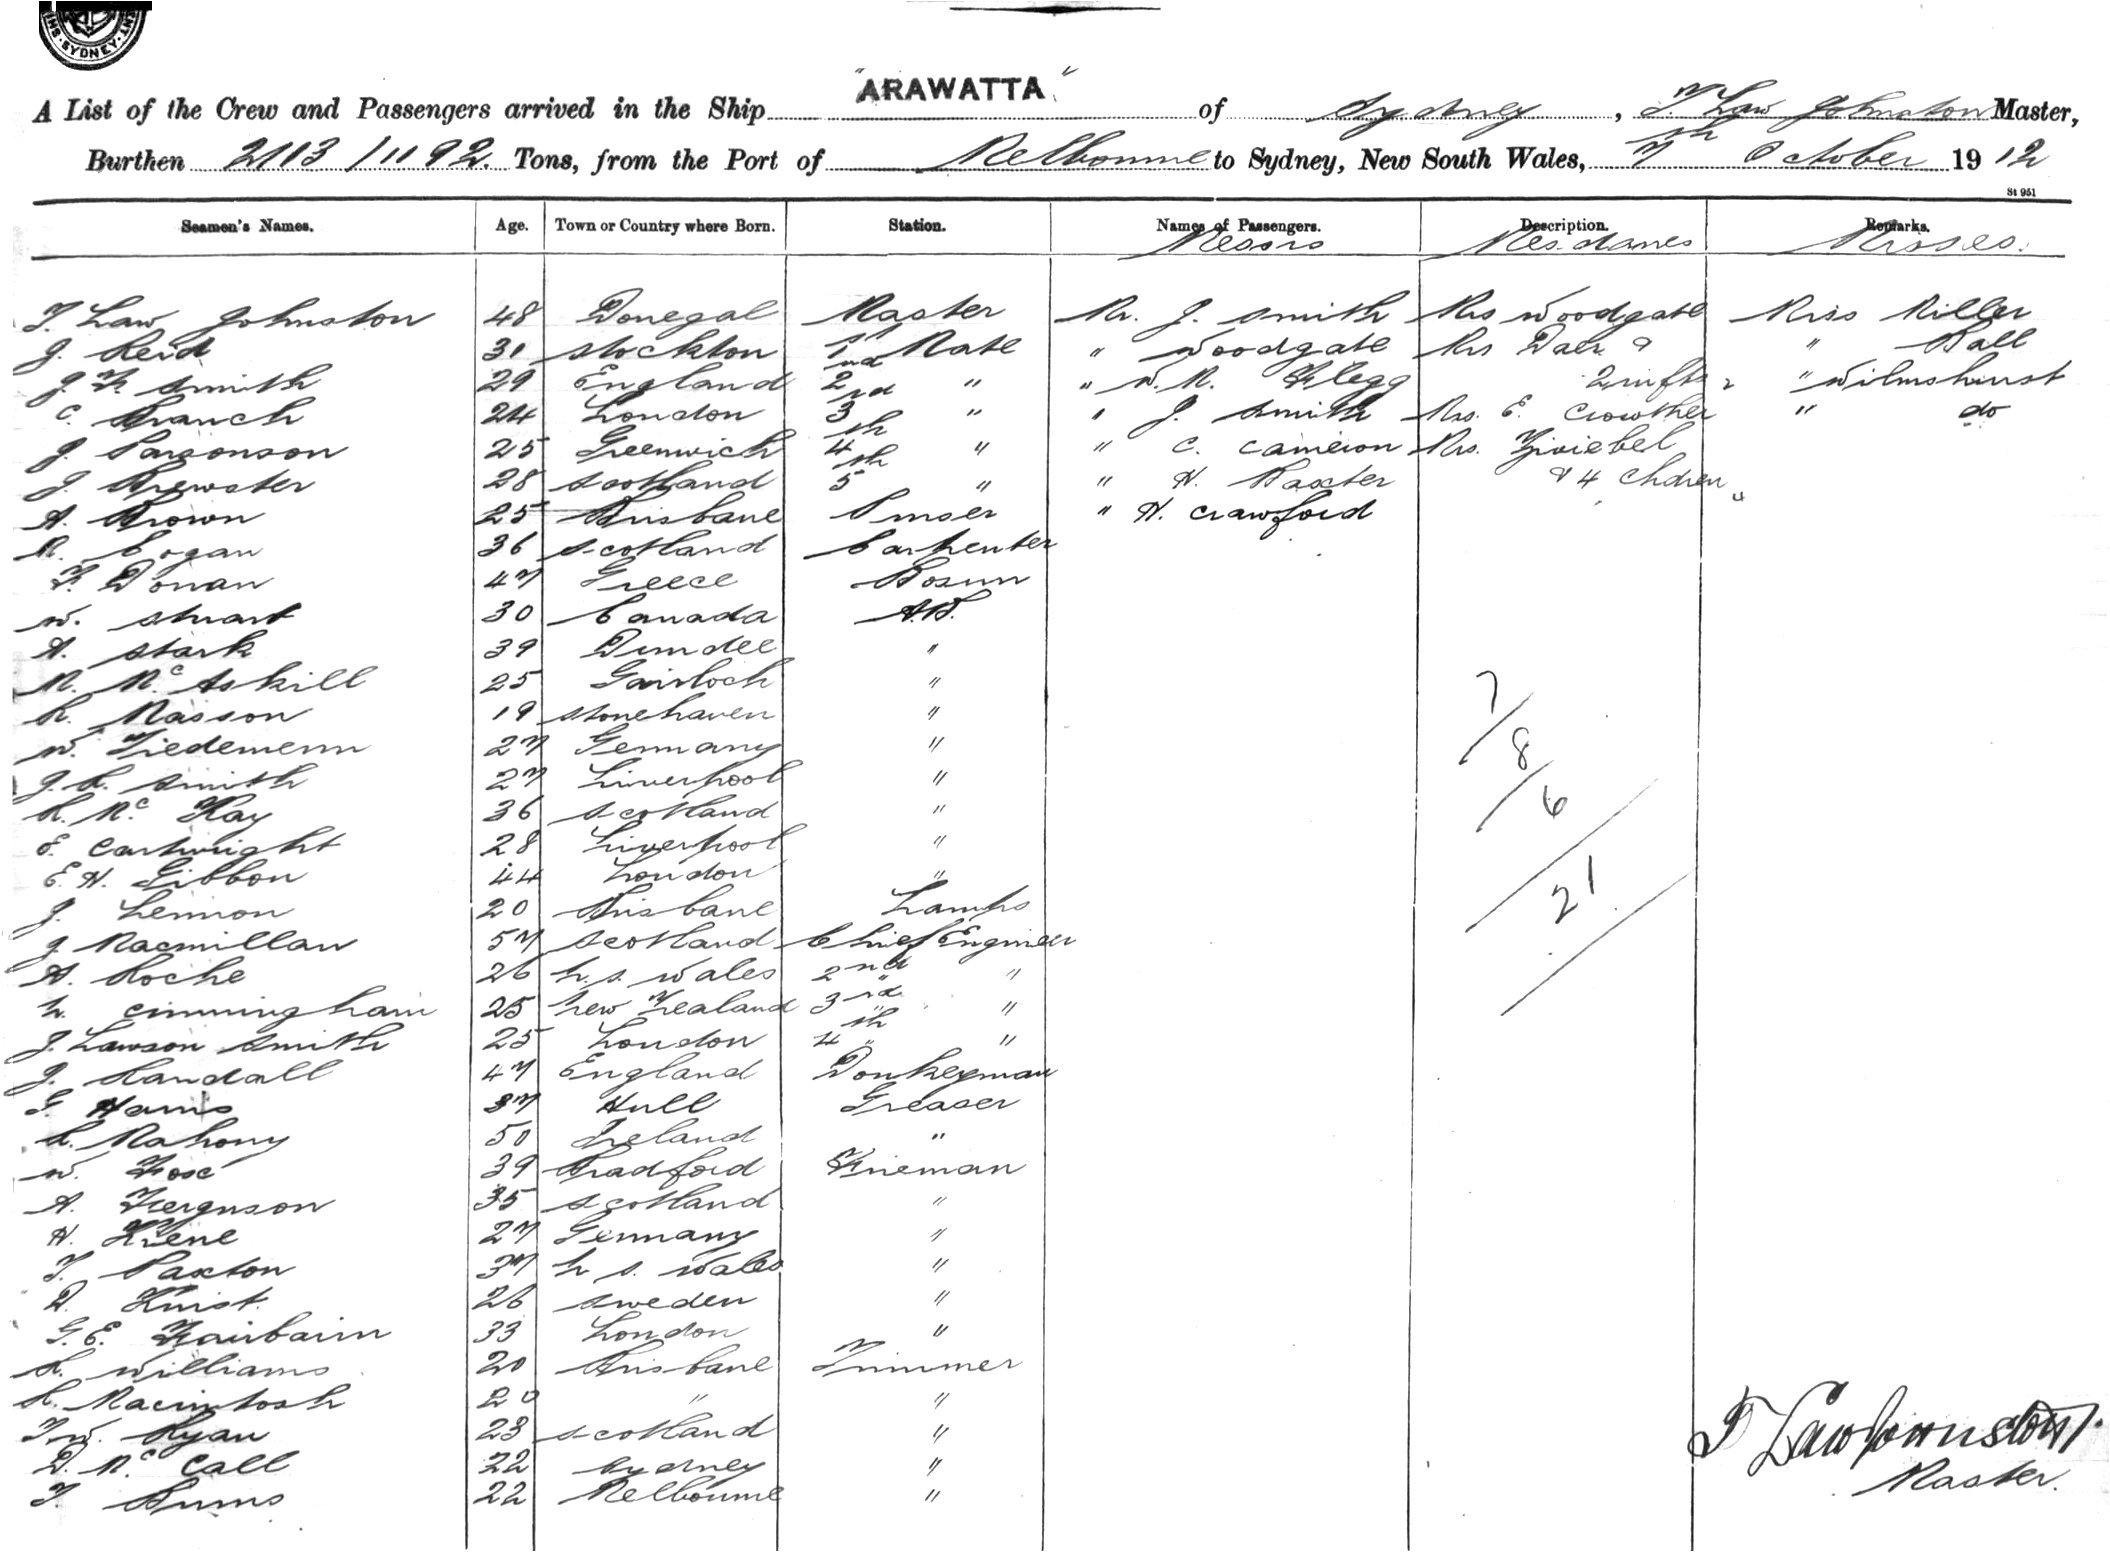 SYDNEY
"ARAWATTA"
A List of the Crew and Passengers arrived in the Ship "ARAWATTA" of Sydney, T. Law Johnston Master,
Burthen 2113/1192. Tons, from the Port of Melbourne to Sydney, New South Wales, 7th October 1912
St 951
Seamen's Names. Age. Town or Country where Born. Station. Names of Passengers. Description. Remarks.
Messrs Mesdames Misses.
T. Law Johnston 48 Donegal Master Mr. J. Smith Mrs Woodgate Miss Miller
J. Reid 31 Stockton 1st Mate " Woodgate Mrs & " Ball
J. F. Smith 29 England 2nd " " W. M. Flegg 2 infts " Wilmshurst
C. Branch 24 London 3rd " " J. Smith Mrs. E. Crowther " do
J. Parsonson 25 Greenwich 4th " " C. Cameron Mrs. Zwiebel
J. Brewster 28 Scotland 5th " " H. Baxter & 4 Chdren
A. Brown 25 Brisbane Purser " H. Crawford
R. Cogan 36 Scotland Carpenter
F. Donan 47 Greece Bosun
W. Stuart 30 Canada A.B.
A. Stark 39 Dundee "
M. McAskill 25 Gairloch "
R. Masson 19 Stonehaven "
W. Tiedemenn 27 Germany "
J. R. Smith 27 Liverpool "
R. Mc Kay 36 Scotland "
E. Cartwright 28 Liverpool "
E. H. Gibbon 44 London "
J. Lennon 20 Brisbane Lamps
J. Macmillan 57 Scotland Chief Engineer
A. Roche 26 N. S. Wales 2nd "
N. Cunningham 25 New Zealand 3rd "
J. Lawson Smith 25 London 4th "
J. Randall 47 England Donkeyman
G. Harris 37 Hull Greaser
D. Mahony 50 Ireland "
W. Fox 39 Bradford Fireman
A. Ferguson 35 Scotland "
H. Kiene 27 Germany "
T. Paxton 37 N. S. Wales "
D. Kuist. 26 Sweden "
G. E. Fairbairn 33 London "
R. Williams 20 Brisbane Trimmer
R. Macintosh 20 " "
T. W. Ryan 23 Scotland "
D. Mc Call 22 Sydney "
T. Burns 22 Melbourne "
7
8
6
21
T Law Johnston.
Master.